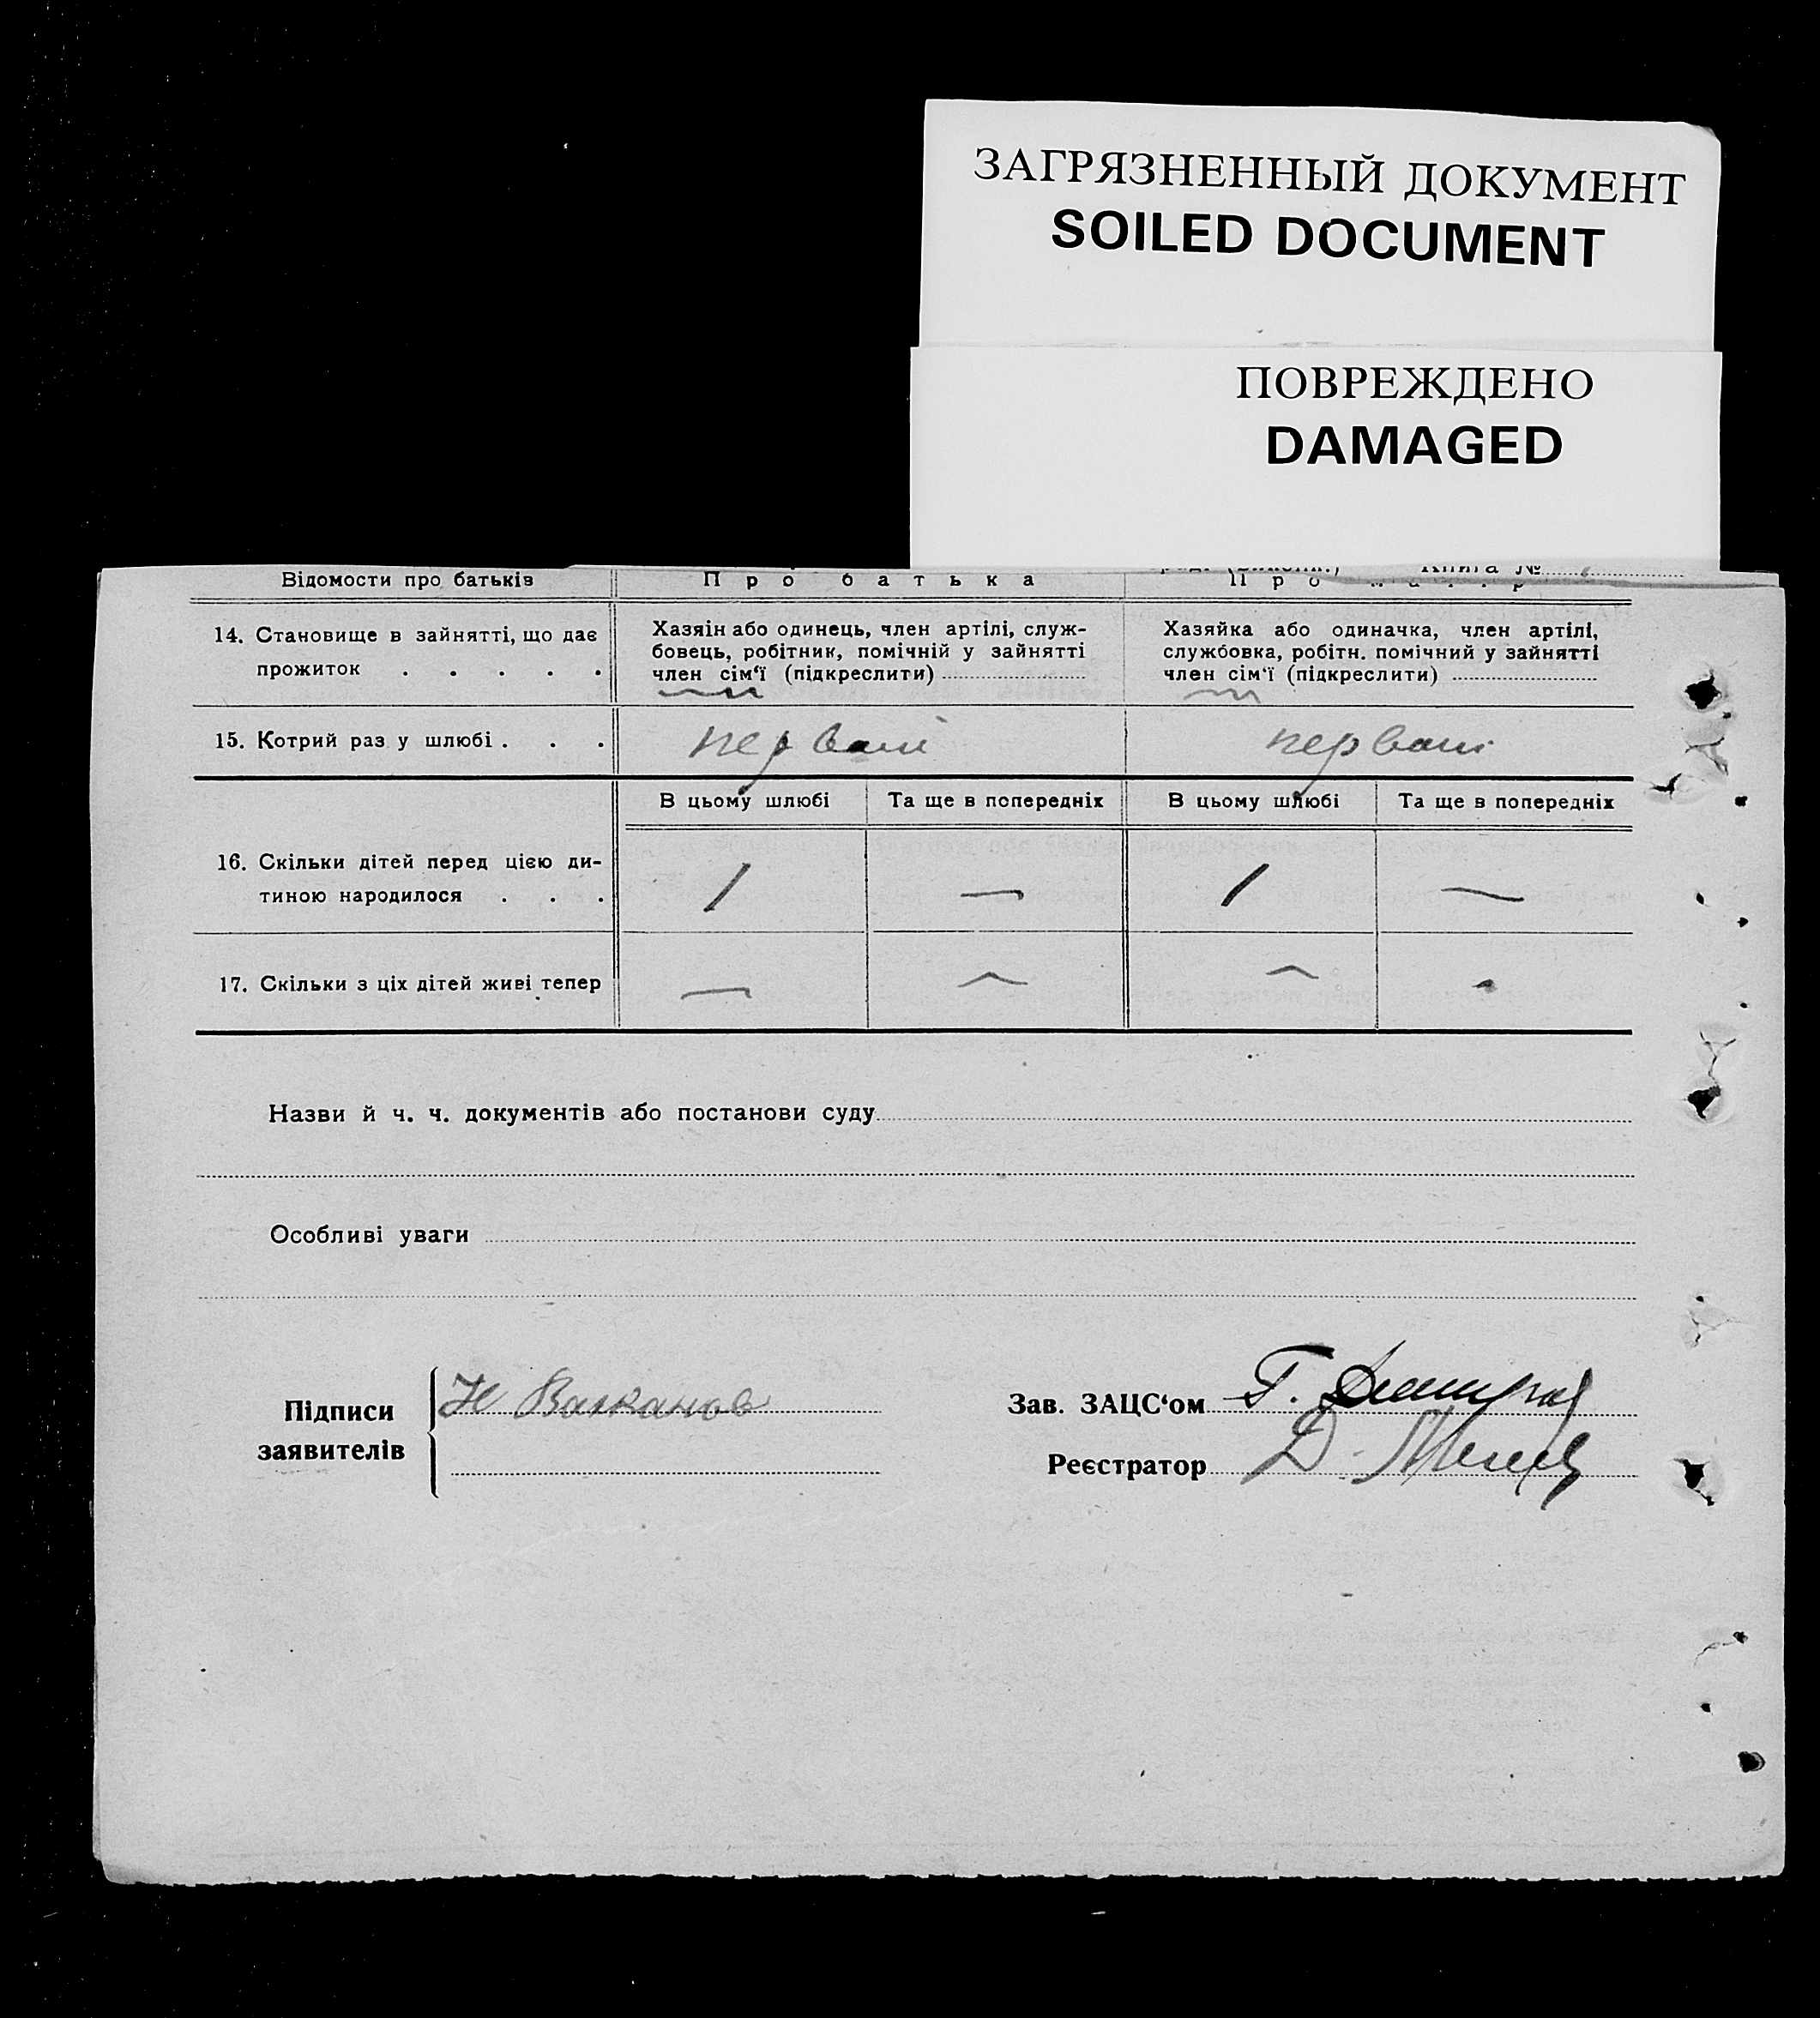 ЗАГРЯЗНЕННЫЙ ДОКУМЕНТ
SOILED DOCUMENT
ПОВРЕЖДЕНО
DAMAGED
Книга №
Відомости про батьків
Про батька
Про
14. Становище в зайнятті, що дає
прожиток . . . . .
Хазяін або одинець, член артілі, служ-
бовець, робітник, помічній у зайнятті
член сім‘ї (підкреслити)
Хазяйка або одиначка, член артілі,
службовка, робітн. помічний у зайнятті
член сім‘ї (підкреслити)
15. Котрий раз у шлюбі . . .
В цьому шлюбі
Та ще в попередніх
В цьому шлюбі
Та ще в попередніх
16. Скільки дітей перед цією ди-
тиною народилося . . .
1 — 1 —
17. Скільки з ціх дітей живі тепер
— — —
Назви й ч. ч. документів або постанови суду
Особливі уваги
Підписи
заявителів
Зав. ЗАЦС‘ом
Реєстратор